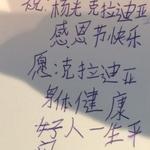 祝:杨老克拉迪亚
感恩节快乐
愿:克拉迪亚
身体健康
好人一生平